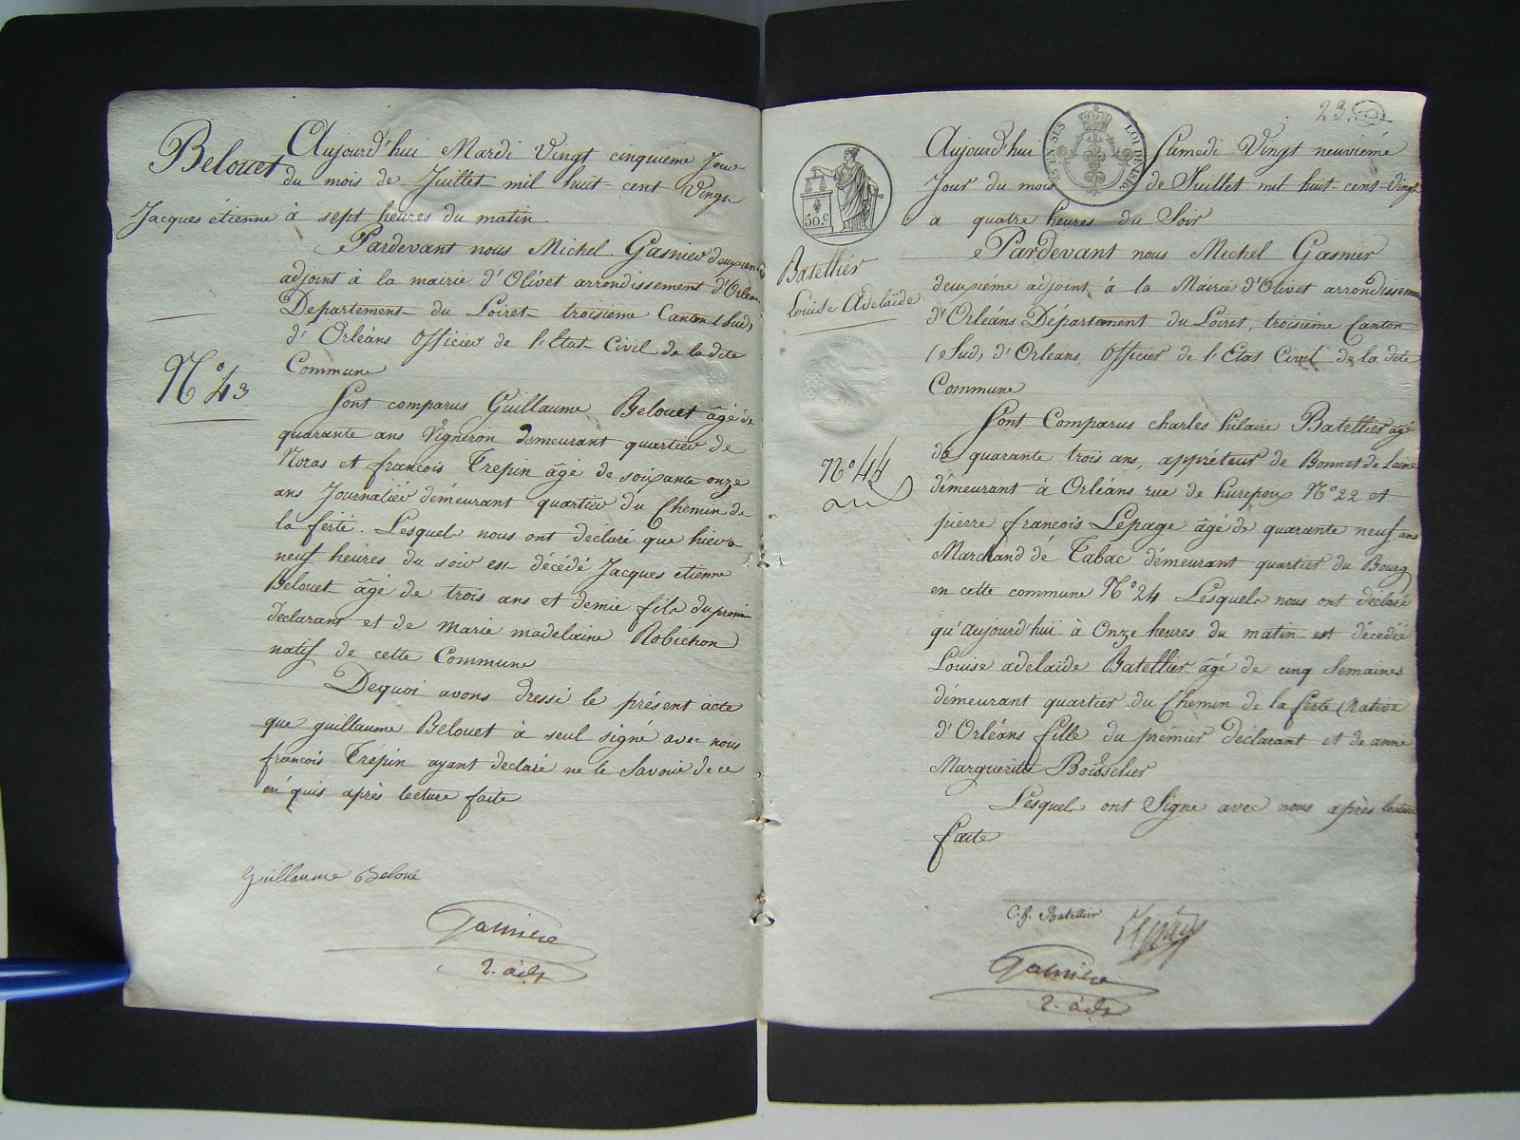 Belouet
Jacques étienne
N° 43
Aujourd'hui Mardi Vingt cinquieme Jour
du mois de Juillet mil huit-cent Vingt
à sept heures du matin
Pardevant nous Michel Gasnier deuxieme
adjoint à la mairie d'Olivet arrondissement d'Orleans
Departement du Loiret troisieme Canton (Sud)
d'Orléans officier de l'Etat Civil de la dite
Commune
Sont comparus Guillaume Belouet âgé de
quarante ans Vigneron demeurant quartier de
Noras et françois Trepin âgé de soixante onze
ans Journalier demeurant quartier du Chemin de
la ferté. Lesquels nous ont déclaré que hier
neuf heures du soir est décédé Jacques etienne
Belouet âgé de trois ans et demie fils du premier
declarant et de marie madelaine Robichon
natif de cette Commune
Dequoi avons dressé le présent acte
que guillaume Belouet à seul signé avec nous
francois Trépin ayant declaré ne le Savoir de ce
enquis après lecture faite
Guillaume Beloué
2. adjt
23
50 c
Batellier
Louise Adelaïde
N° 44
Aujourd'hui Samedi Vingt neuvième
Jour du mois de Juillet mil huit-cent-Vingt
a quatre heures du Soir
Pardevant nous Michel Gasnier
deuxième adjoint à la Mairie d'Olivet arrondissement
d'Orléans Département du Loiret, troisième Canton
(Sud) d'Orléans officier de l'Etat Civil de la dite
Commune
Sont Comparus charles hilaire Batellier agé
de quarante trois ans, appréteur de Bonnet de Laine
démeurant à Orléans rue de hurepoix N° 22 et
pierre françois Lepage âgé de quarante neuf ans
Marchand de Tabac démeurant quartier du Bourg
en cette commune N° 24 Lesquels nous ont déclaré
qu'aujourd'hui à Onze heures du matin est décédée
Louise adelaïde Batellier âgé de cinq Semaines
démeurant quartier du Chemin de la ferté (Native
d'Orléans fille du premier Déclarant et de anne
Marguerite Boisselier
Lesquels ont Signé avec nous après lecture
faite
C. h. Batellier
2. adjt